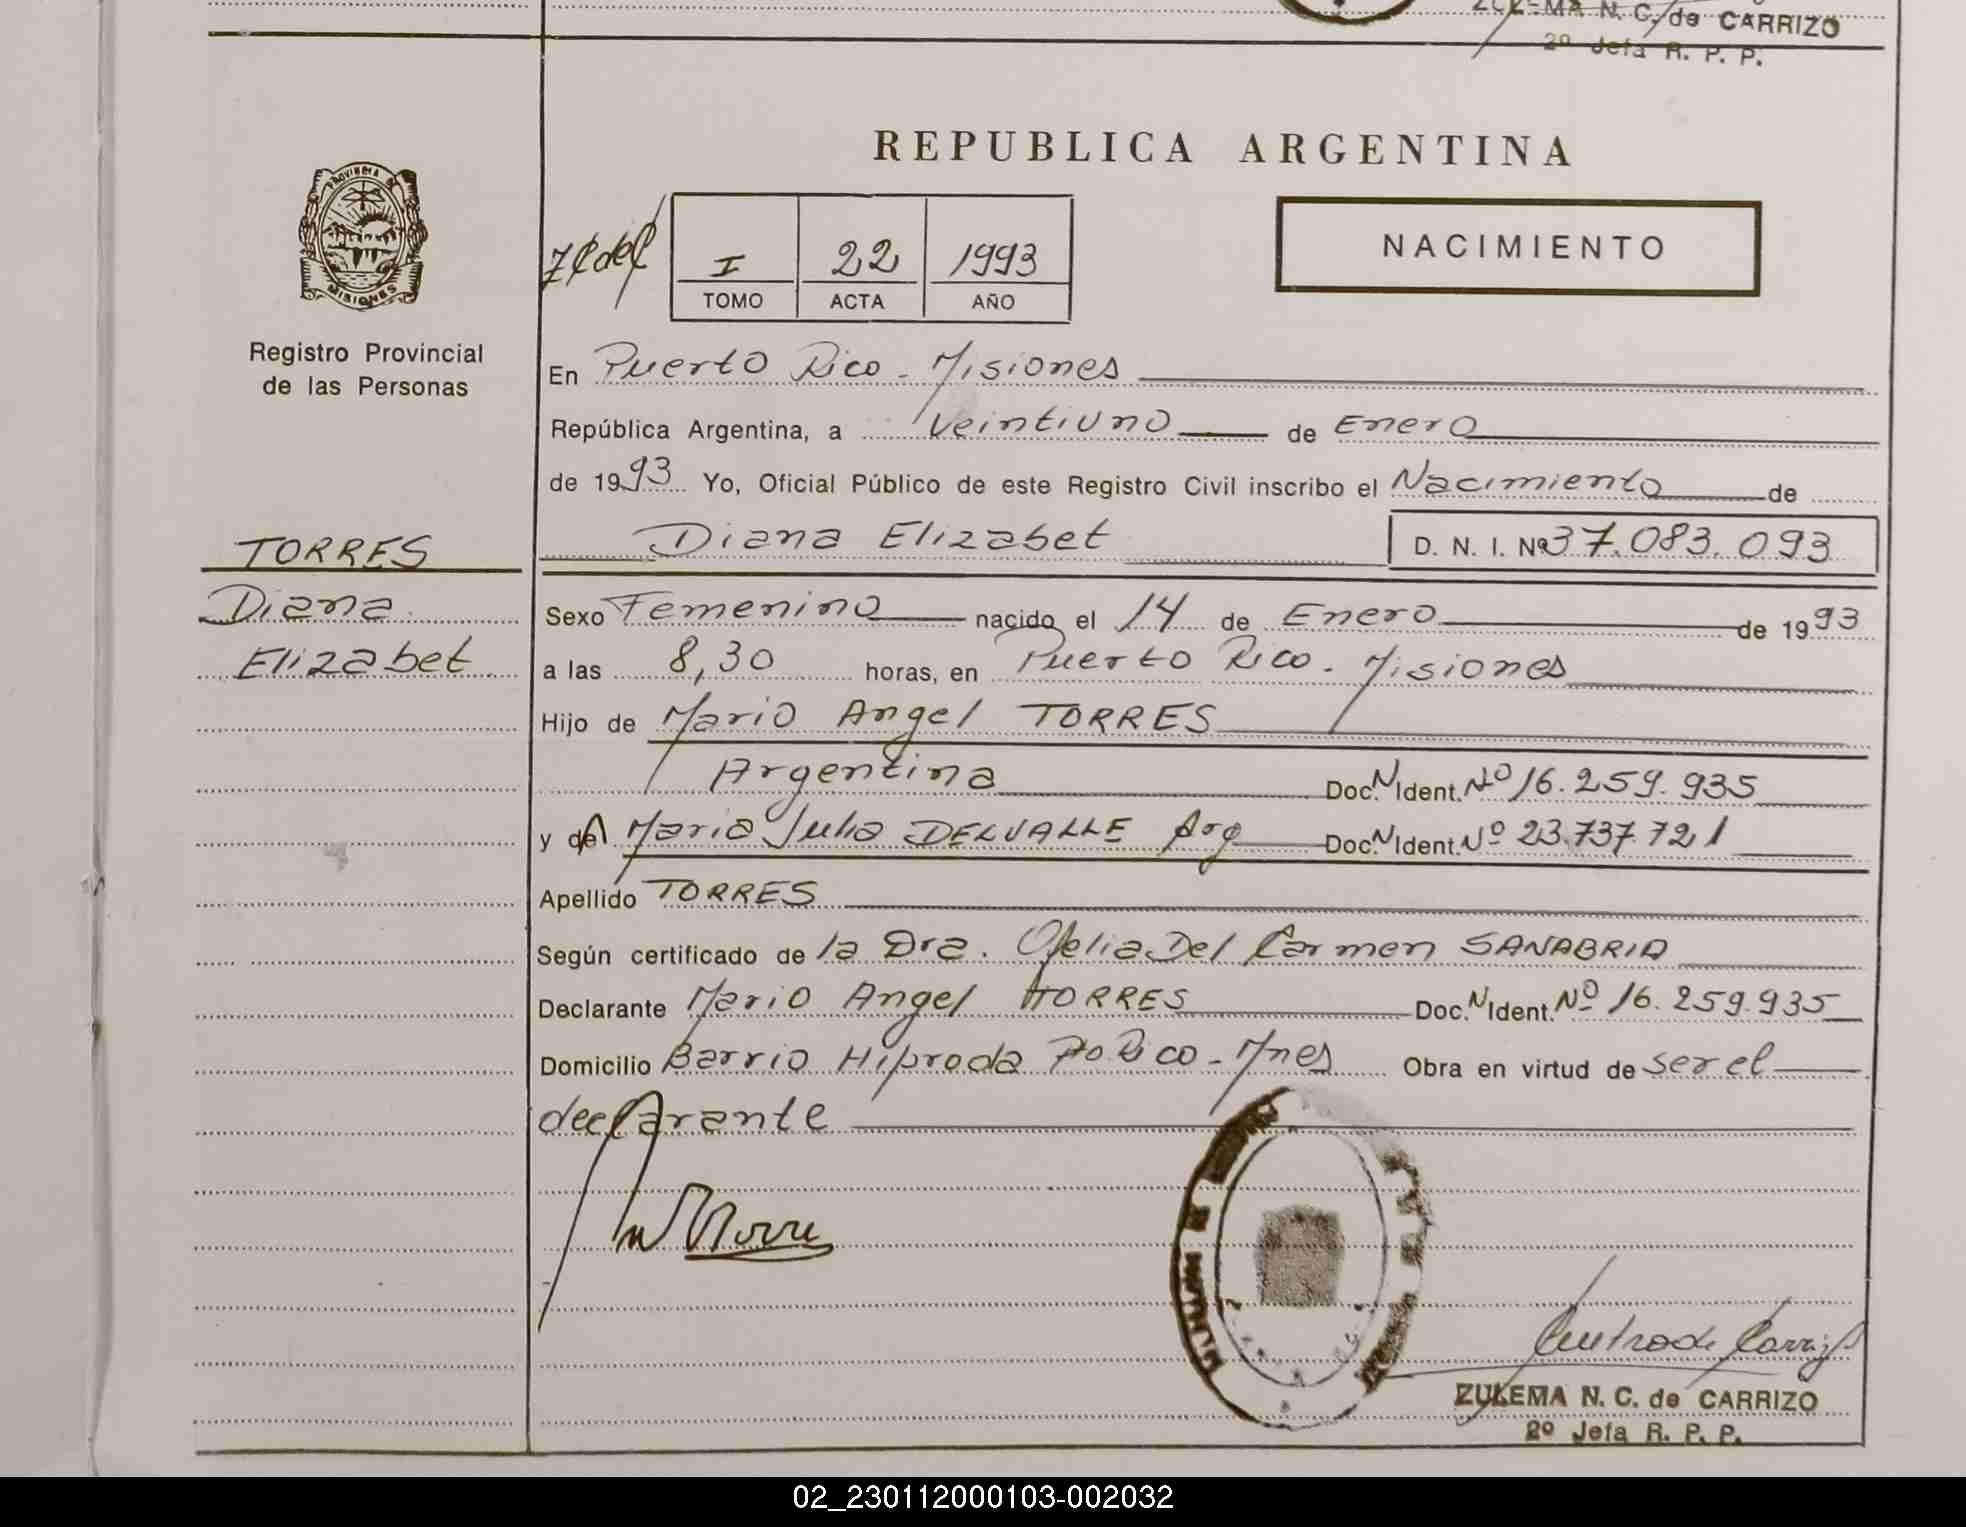 ZULEMA N. C. de CARRIZO
2º Jefa R. P. P.
REPUBLICA ARGENTINA
PROVINCIA DE
MISIONES
Registro Provincial
de las Personas
I 22 1993
TOMO ACTA AÑO
NACIMIENTO
En Puerto Rico - Misiones
República Argentina, a Veintiuno de Enero
de 1993 Yo, Oficial Público de este Registro Civil inscribo el Nacimiento de
Diana Elizabet D. N. I. Nº 37.083.093
TORRES
Diana
Elizabet
Sexo Femenino nacido el 14 de Enero de 1993
a las 8,30 horas, en Puerto Rico - Misiones
Hijo de Mario Angel TORRES
Argentina Doc. N Ident. Nº 16.259.935
y de Maria Julia DELVALLE Arg Doc. N Ident. Nº 23.737.721
Apellido TORRES
Según certificado de la Dra. Ofelia Del Carmen SANABRIA
Declarante Mario Angel TORRES Doc. N Ident. Nº 16.259.935
Domicilio Barrio Hiproda Pto Rico - Mnes Obra en virtud de ser el
declarante
ZULEMA N. C. de CARRIZO
2º Jefa R. P. P.
02_230112000103-002032